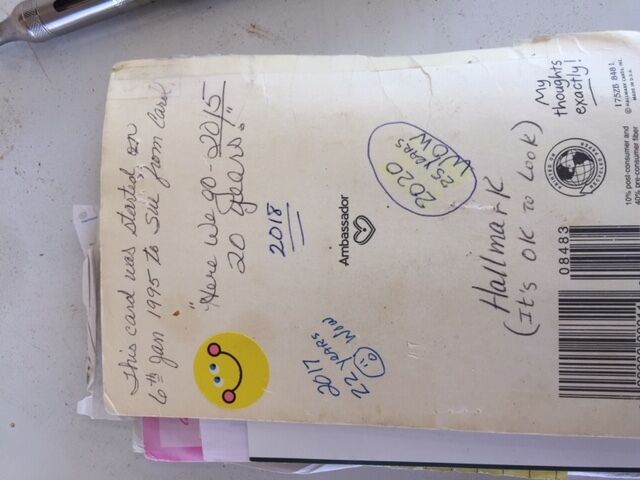 This card was started on
6th Jan 1995 to Sue from Carol
"Here We go - 2015
20 years!!"
2018
2017
22 years
Wow
Ambassador
2020
25 YEARS
WOW
Hallmark
(It's OK TO LOOK)
My
thoughts
exactly!
175ZB 848 L
© HALLMARK CARDS, INC.
MADE IN U.S.A.
10% post-consumer and
40% pre-consumer fiber
08483